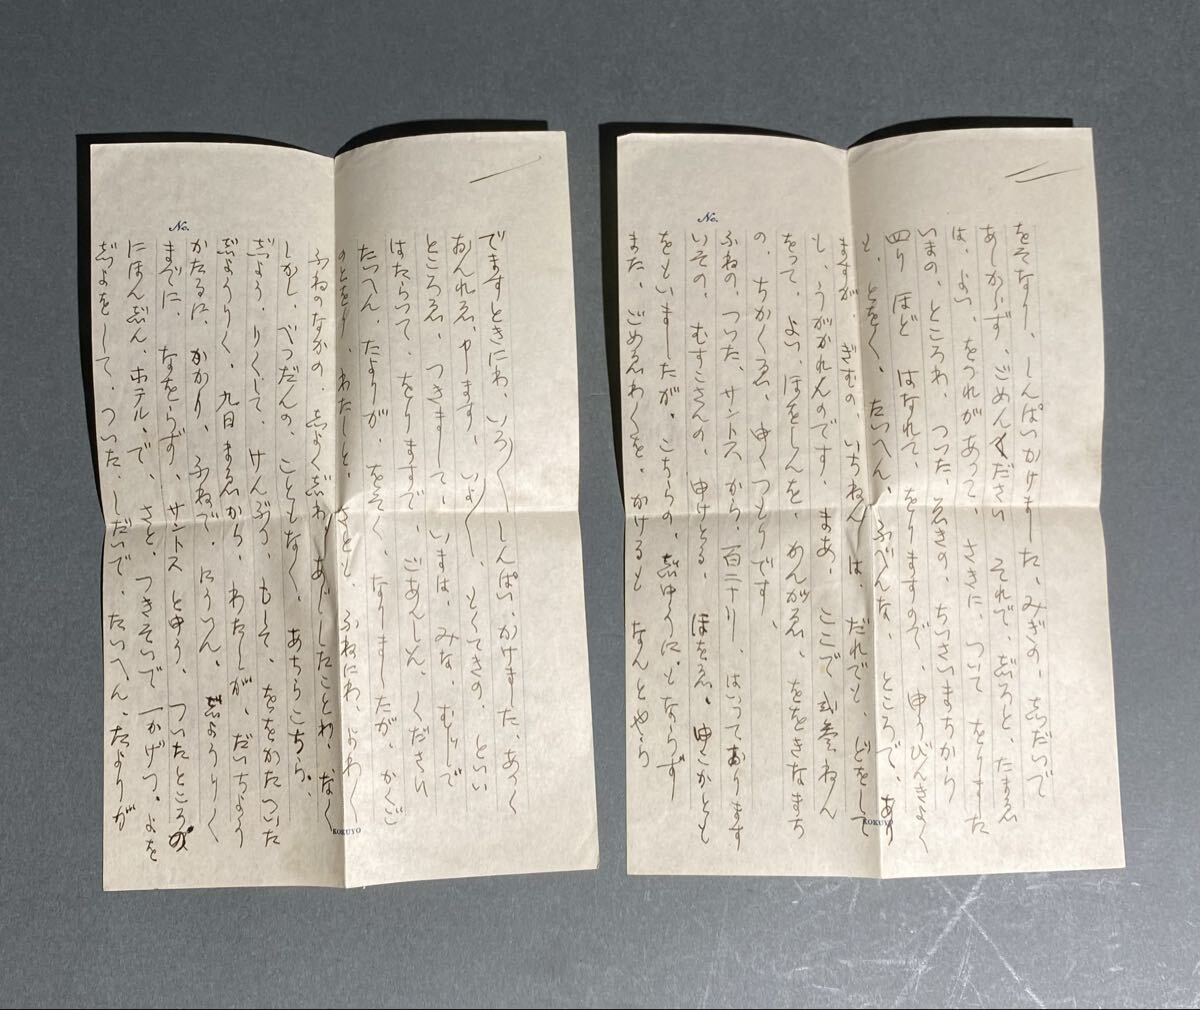 でますときにわ、いろ〱しんぱい、かけました、あつく
おんれゑ、申ます、いよ〱、もくてきの、とい
ところゑ、つきまして、いまは、みな、むじで
はたらって、をりますで、ごあんしん、ください
たいへん、たよりが、をそく、なりましたが、かくご
のとをり、わたしと、さとも、ふねにわ、よわく
ふねのなかの、志よく志わ、あじしたことわ、なく
しかし、べつだんの、こともなく、あちらこちら、
志"よう、りくじて、けんぶつ、もして、ををかたついた
志"ようりく、九日まゑから、わたしが、だいちよう
かたるに、かかり、ふねで、にういん、志"ようりく
までに、なをらず、サントスと申う、ついたところの
にほん志"ん、ホテル、で、さと、つきそいで一かげつ、よを
志"よをして、ついた、しだいで、たいへん、たよりが
No.
KOKUYO
をそなり、しんぱいかけました、みぎの、志だいで
あしからず、ごめんください それで、志"ろと、たまゑ
は、よい、をつれがあって、さきに、ついて をりました
いまの、ところわ、つった、ゑきの、ちいさいまちから
四り ほど はなれて、をりますので、申うびんきよく
も、とをく、たいへん、ふべんな、ところで、あり
ますが、ぎむの、いちねん は、だれでも、どをして
も、うがかれんのです、まあ、ここで 弐参ねん
をって、よい、ほをしんを、かんがゑ、ををきなまち
の、ちかくゑ、申くつもりです、
ふねの、ついた、サントスから、百二十り、はいっております
いその、むすこさんの、申けとる、ほをゑ、申こかとも
をもいましたが、こちらの、志"ゆうに、もならず
また、ごめゑわくを、かけるも なんとやら
No.
KOKUYO